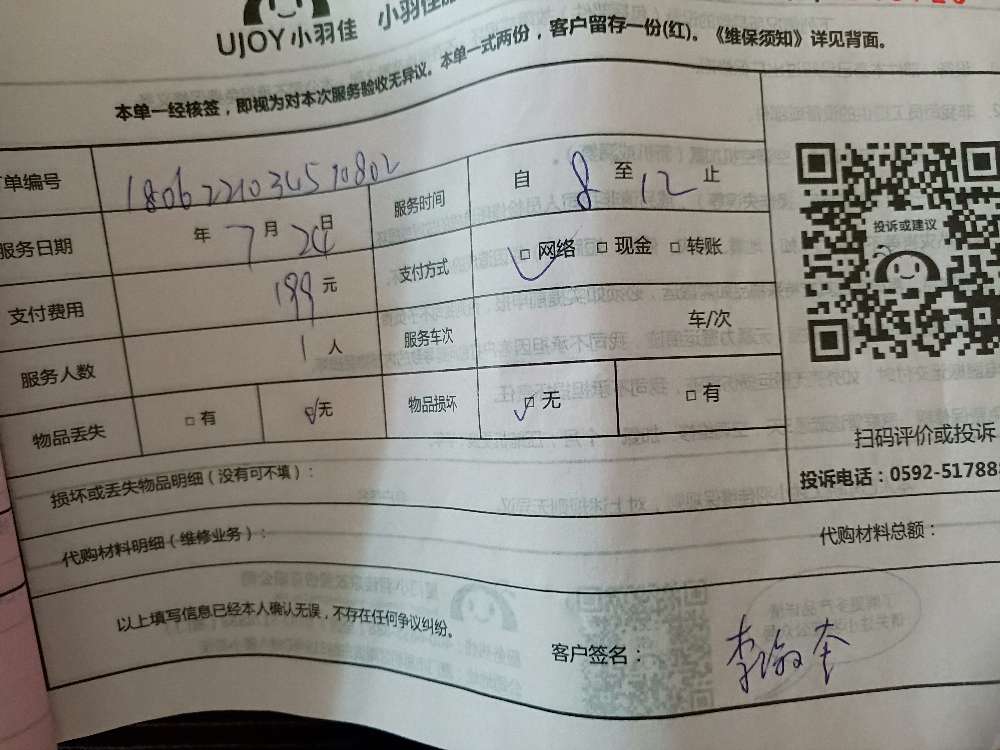 UJOY小羽佳 小羽佳
本单一经核签，即视为对本次服务验收无异议。本单一式两份，客户留存一份(红)。《维保须知》详见背面。
单编号 1806221034510802
服务时间 自 8 至 12 止
服务日期 年 7 月 24 日
支付方式 □ 网络 □ 现金 □ 转账
支付费用 199 元
服务车次 车/次
服务人数 1 人
物品丢失 □ 有 □ 无
物品损坏 □ 无 □ 有
损坏或丢失物品明细（没有可不填）：
代购材料明细（维修业务）：
代购材料总额：
以上填写信息已经本人确认无误，不存在任何争议纠纷。
客户签名：
投诉或建议
扫码评价或投诉
投诉电话：0592-517888